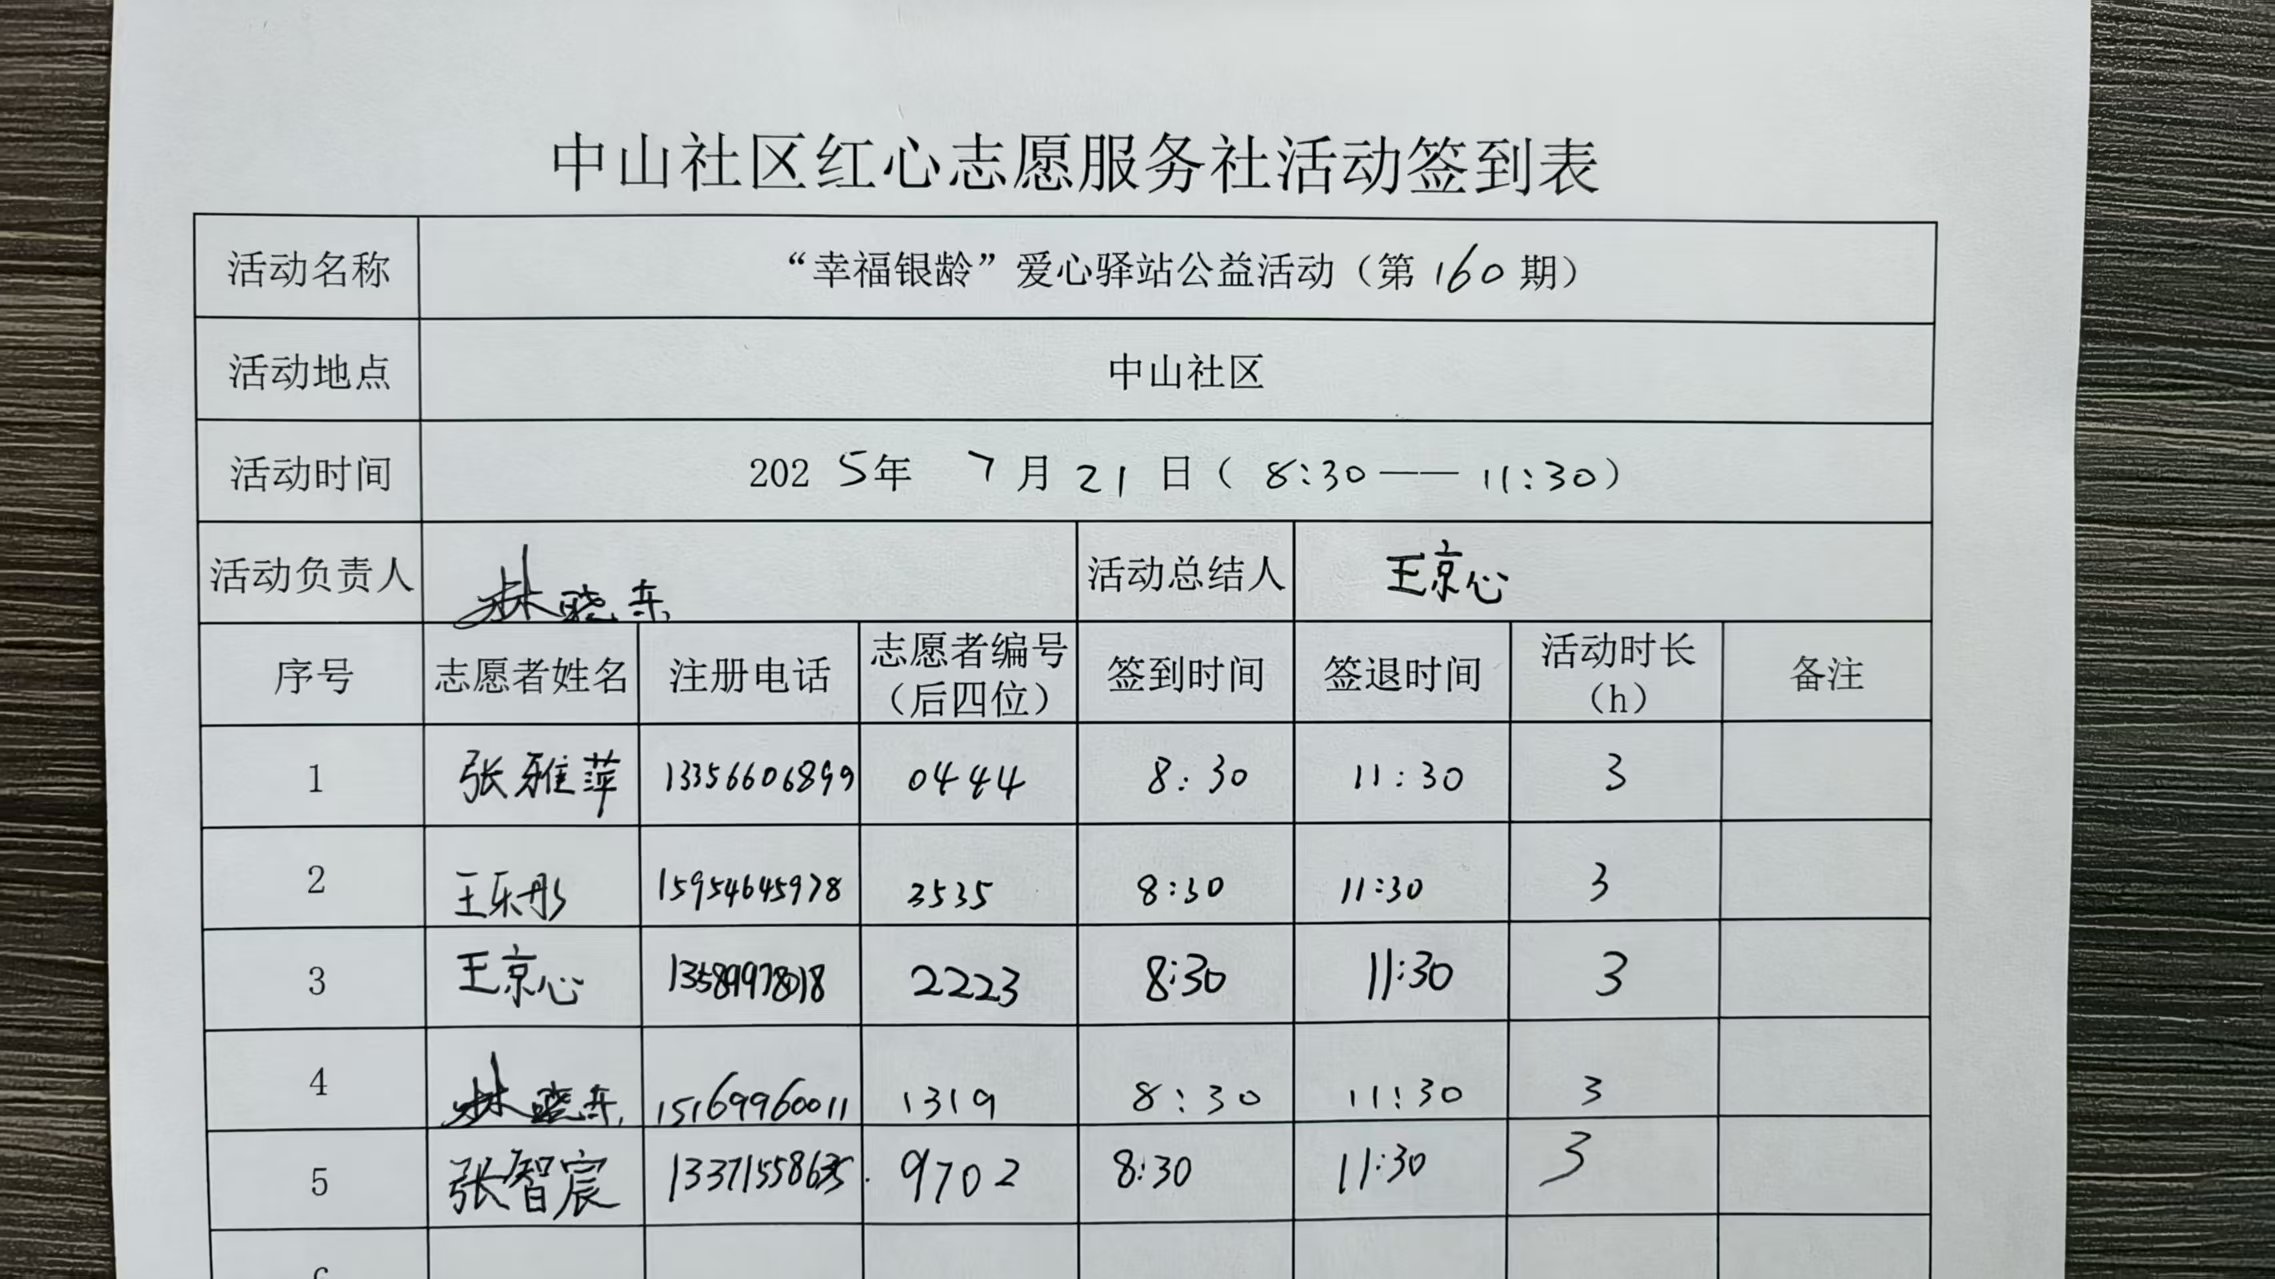 中山社区红心志愿服务社活动签到表
活动名称 “幸福银龄”爱心驿站公益活动（第160期）
活动地点 中山社区
活动时间 2025年 7月21日（8:30——11:30）
活动负责人 林晓东 活动总结人 王京心
序号 志愿者姓名 注册电话 志愿者编号（后四位） 签到时间 签退时间 活动时长（h） 备注
1 张雅萍 13356606899 0444 8:30 11:30 3
2 王乐彤 15954645978 3535 8:30 11:30 3
3 王京心 13589978018 2223 8:30 11:30 3
4 林晓东 15169960011 1319 8:30 11:30 3
5 张智宸 13371558635 9702 8:30 11:30 3